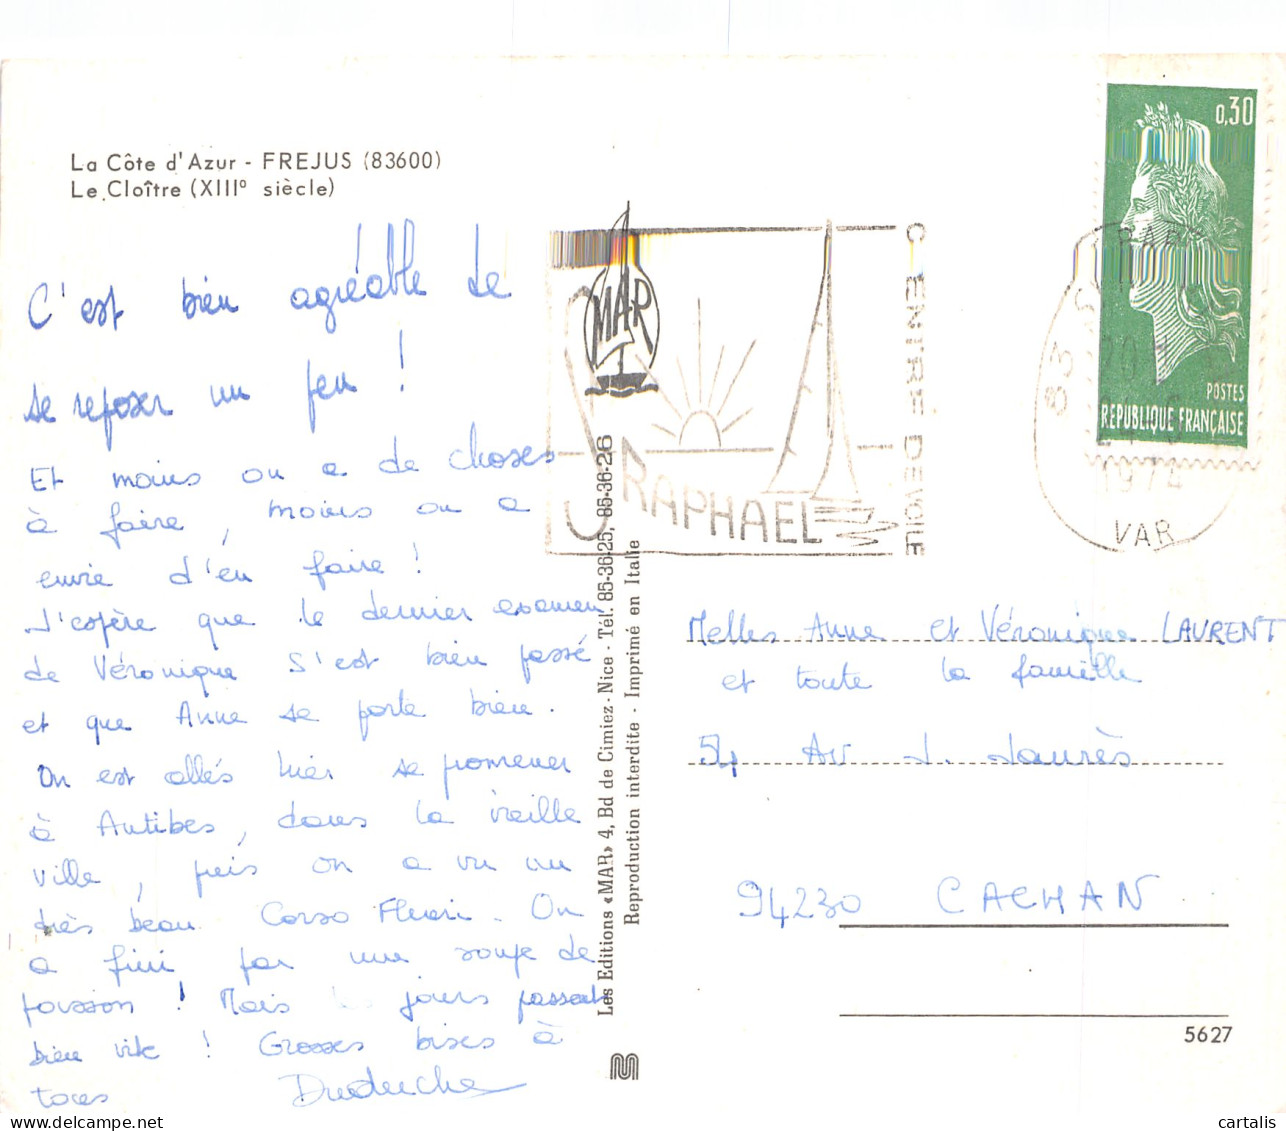 La Côte d'Azur - FREJUS (83600)
Le Cloître (XIIIº siècle)
C'est bien agréable de
se reposer un peu !
Et moins on a de choses
à faire, moins on a
envie d'en faire !
J'espère que le dernier examen
de Véronique s'est bien passé
et que Anne se porte bien.
On est allés hier se promener
à Antibes, dans la vieille
ville, puis on a vu un
très beau Corso Fleuri. On
a fini par une soupe de
poisson ! Mais les jours passent
bien vite ! Grosses bises à
toues
Duduche
Les Editions «MAR» 4, Bd de Cimiez - Nice - Tél. 85-36-25, 85-36-26
Reproduction interdite - Imprimé en Italie
MAR
ST RAPHAEL
CENTRE DE VOILE
83
VAR
1974
0,30
POSTES
REPUBLIQUE FRANÇAISE
Melles Anne et Véronique LAURENT
et toute la famille
54 Av J. Jaurès
94230 CACHAN
5627
cartalis
www.delcampe.net